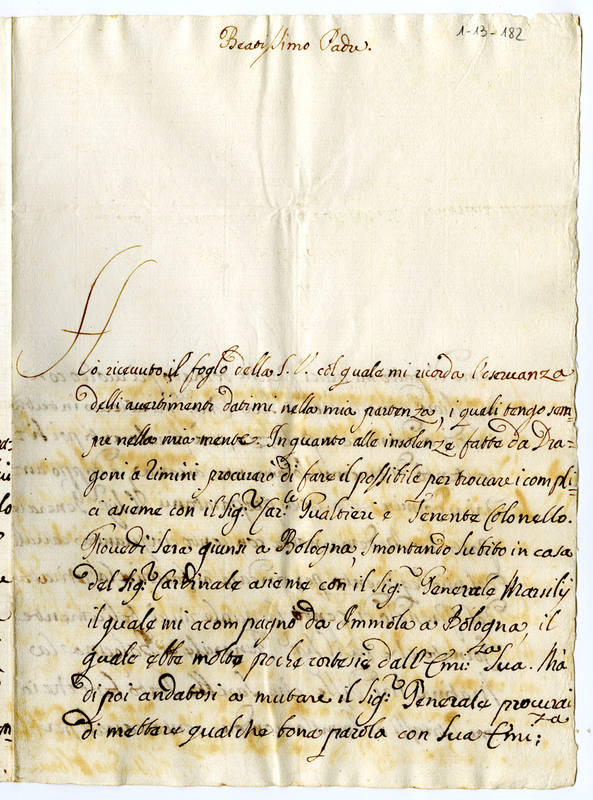 1-13-182
Beatissimo Padre.
Ho ricevuto il foglo della S. V. col quale mi ricorda l'eservanza
delli avertimenti datimi nella mia partenza, i quali tengo sem=
pre nella mia mente. In quanto alle insolenze fatte da Dra=
goni a Rimini procuraró di fare il possibile per trovare i compli=
ci asieme con il Sig.r Car.le Gualtieri e Tenente Colonello.
Giovedi sera giunsi a Bologna, smontando subito in casa
del Sig.r Cardinale asieme con il Sig.r Generale Marsilij
il quale mi acompagnò da Immola a Bologna, il
quale ebbe molte poche cortesie dall'Emi:za Sua. Mà
di poi andatosi a mutare il Sig.r Generale procurai
di mettere qualche bona parola con Sua Emi:za